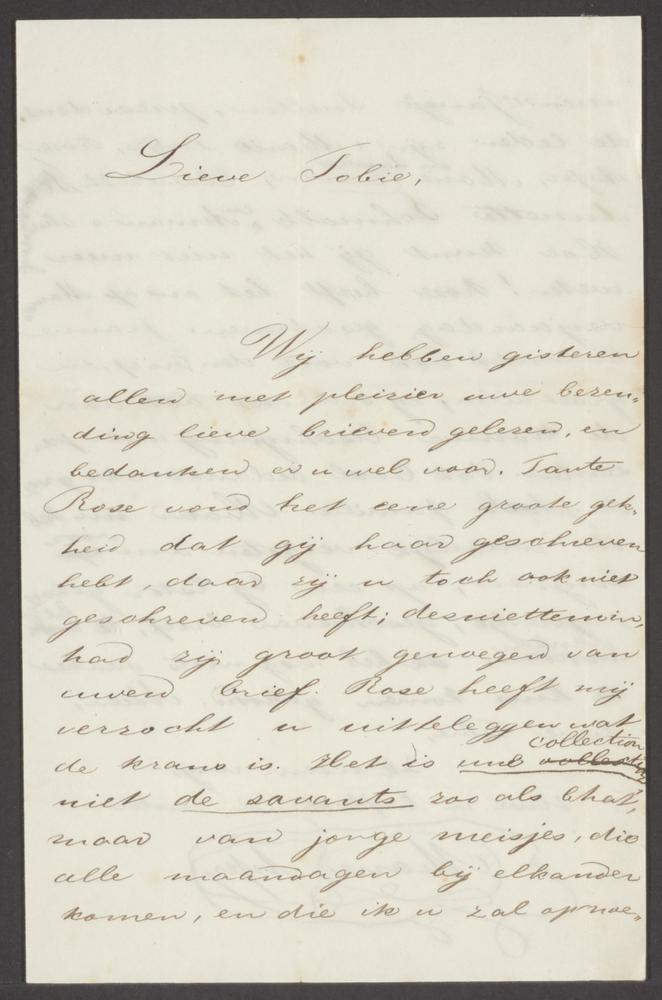 Lieve Tobie,
Wij hebben gisteren
allen met pleizier uwe bezen„
ding lieve brieven gelezen, en
bedanken er u wel voor. Tante
Rose vond het eene groote gek„
heid dat gij haar geschreven
hebt, daar zij u toch ook niet
geschreven heeft; desniettemin,
had zij groot genoegen van
uwen brief. Rose heeft mij
verzocht u uitteleggen wat
de krans is. Het is une collection
niet de savants zoo als bhat,
maar van jonge meisjes, die
alle maandagen bij elkander
komen, en die ik u zal opnoe„